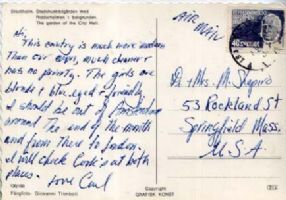 Stockholm. Stadshusträdgården med
Riddarholmen i bakgrunden.
The garden of the City Hall.
Air Mail
Hi,
This country is much more modern
than our own, much cleaner
has no poverty. The girls are
blonde & blue eyed & friendly
I should be out of Amsterdam
around the end of the month
and from there to London.
I will check Cook's at both
places.
Love Carl
Dr. & Mrs. M. Shapiro
53 Rockland St
Springfield Mass.
U.S.A.
Färgfoto: Giovanni Trimboli
Copyright
GRAFISK KONST